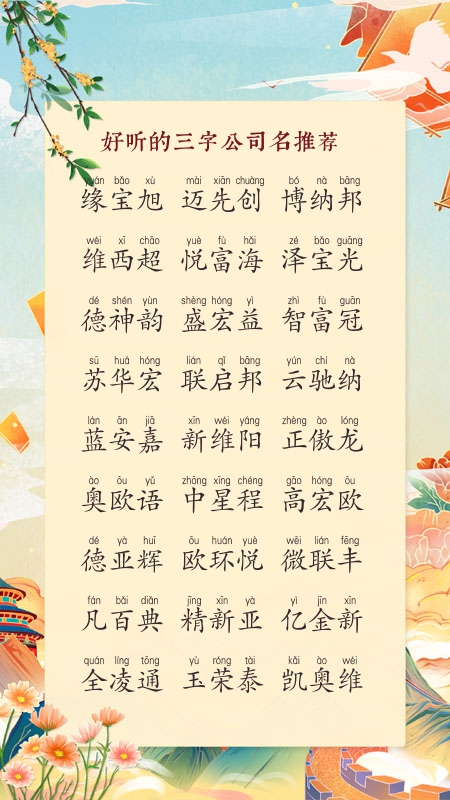 好听的三字公司名推荐
yuán bǎo xù mài xiān chuàng bó nà bāng
缘宝旭 迈先创 博纳邦
wéi xī chāo yuè fù hǎi zé bǎo guāng
维西超 悦富海 泽宝光
dé shén yùn shèng hóng yì zhì fù guān
德神韵 盛宏益 智富冠
sū huá hóng lián qǐ bāng yún chí nà
苏华宏 联启邦 云驰纳
lán ān jiā xīn wéi yáng zhèng ào lóng
蓝安嘉 新维阳 正傲龙
ào ōu yǔ zhōng xīng chéng gāo hóng ōu
奥欧语 中星程 高宏欧
dé yà huī ōu huán yuè wēi lián fēng
德亚辉 欧环悦 微联丰
fán bǎi diǎn jīng xīn yà yì jīn xīn
凡百典 精新亚 亿金新
quán líng tōng yù róng tài kǎi ào wéi
全凌通 玉荣泰 凯奥维